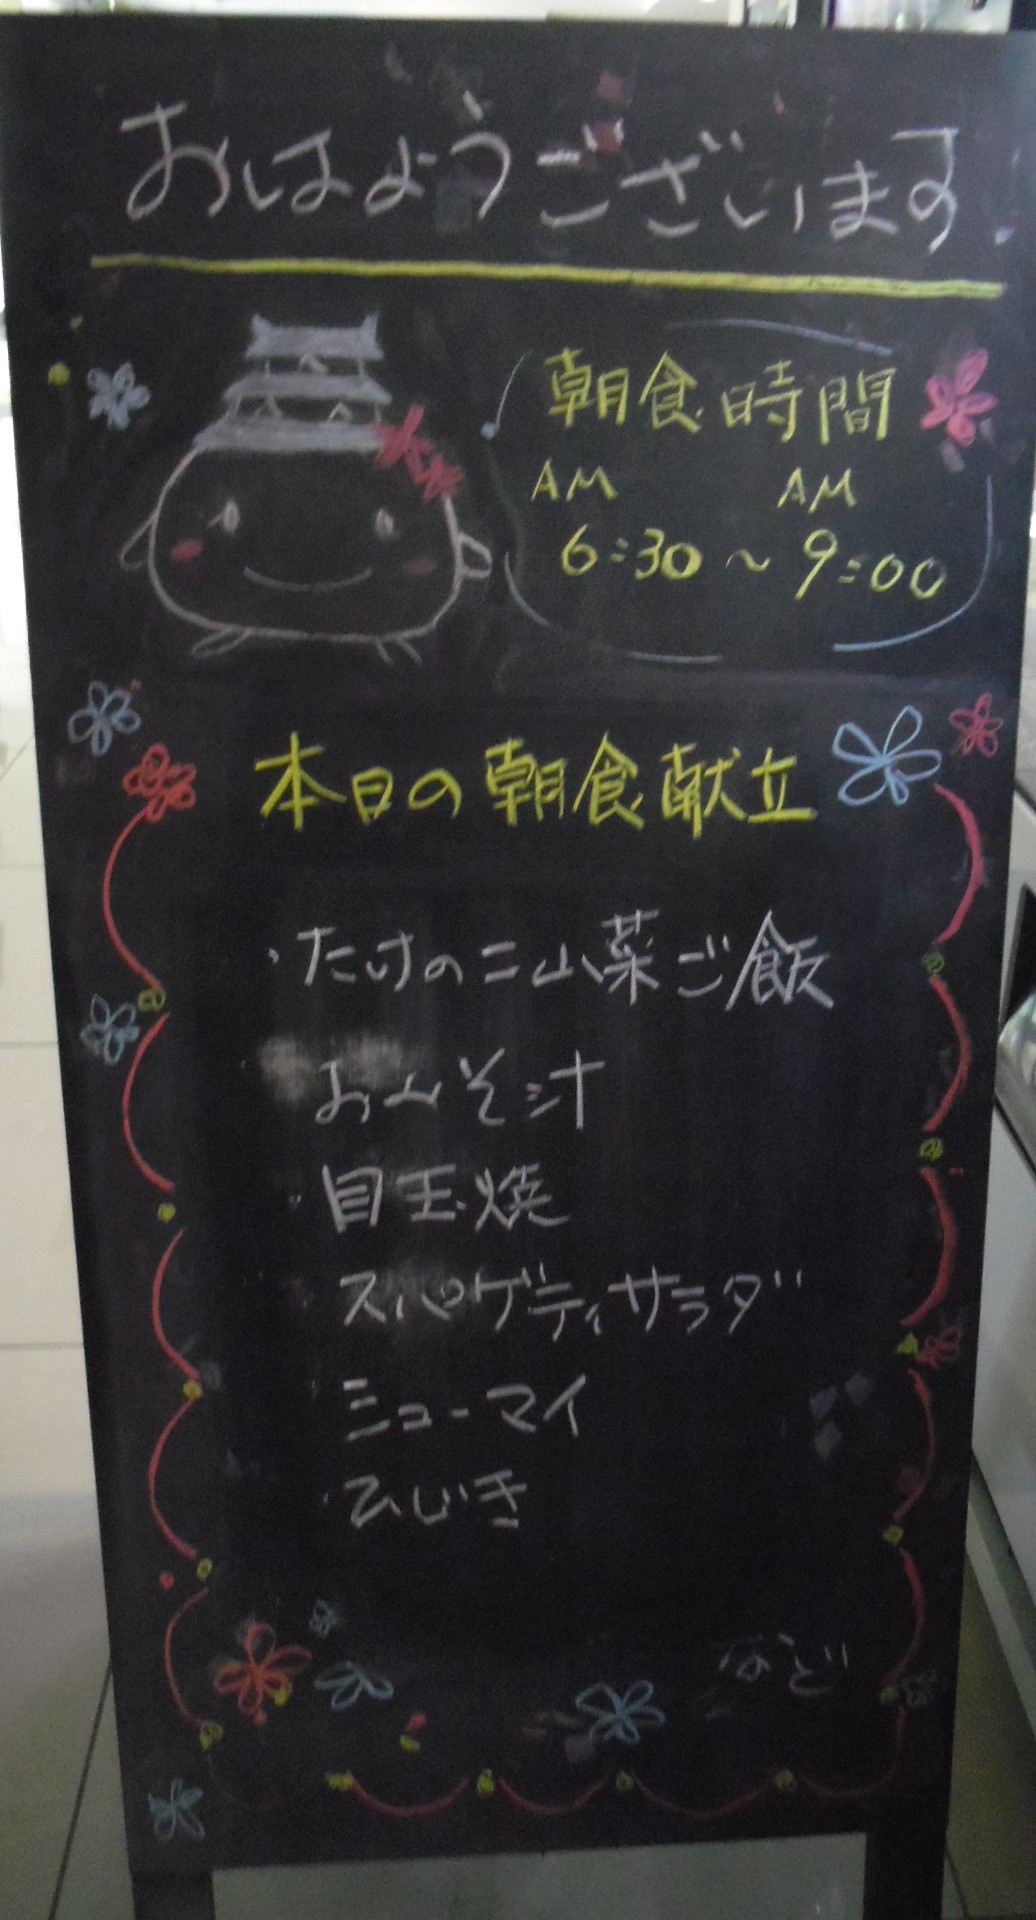 おはようございます
朝食時間
AM AM
6:30～9:00
本日の朝食献立
・たけのこ山菜ご飯
おみそ汁
・目玉焼
スパゲティサラダ
シューマイ
・ひじき
など